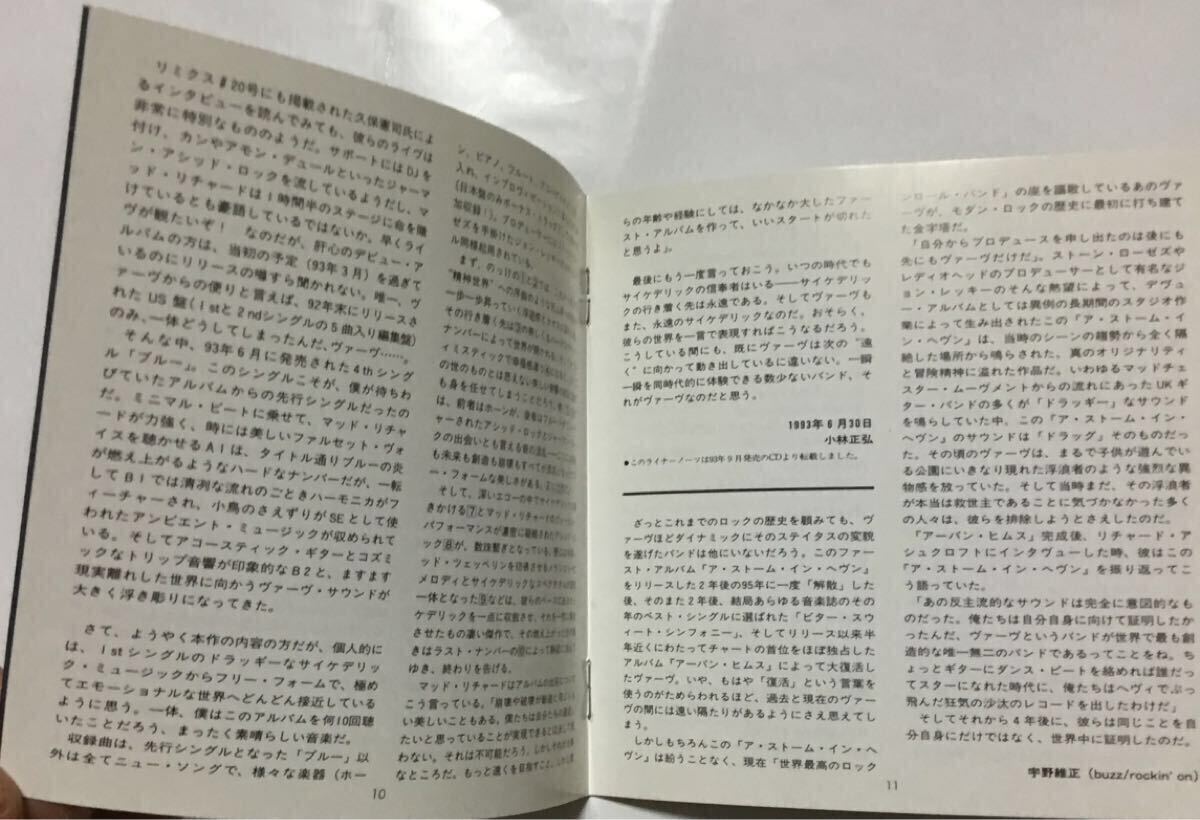 リミクス#20号にも掲載された久保憲司氏によ
るインタビューを読んでみても、彼らのライヴは
非常に特別なもののようだ。サポートにはDJを
付け、カンやアモン・デュールといったジャーマ
ン・アシッド・ロックを流しているようだし、マ
ッド・リチャードは1時間半のステージに命を賭
けているとも豪語しているではないか。早くライ
ヴが観たいぞ! なのだが、肝心のデビュー・ア
ルバムの方は、当初の予定(93年3月)を過ぎて
いるのにリリースの噂すら聞かれない。唯一、ヴ
ァーヴからの便りと言えば、92年末にリリースさ
れたUS盤(1stと2ndシングルの5曲入り編集盤)
のみ、一体どうしてしまったんだ、ヴァーヴ……。
そんな中、93年6月に発売された4thシング
ル「ブルー」。このシングルこそが、僕が待ちわ
びていたアルバムからの先行シングルだったの
だ。ミニマル・ビートに乗せて、マッド・リチャ
ードが力強く、時には美しいファルセット・ヴォ
イスを聴かせるA1は、タイトル通りブルーの炎
が燃え上がるようなハードなナンバーだが、一転
してB1では清冽な流れのごときハーモニカがフ
ィーチャーされ、小鳥のさえずりがSEとして使
われたアンビエント・ミュージックが収められて
いる。そしてアコースティック・ギターとコズミ
ックなトリップ音響が印象的なB2と、ますます
現実離れした世界に向かうヴァーヴ・サウンドが
大きく浮き彫りになってきた。
さて、ようやく本作の内容の方だが、個人的に
は、1stシングルのドラッギーなサイケデリッ
ク・ミュージックからフリー・フォームで、極め
てエモーショナルな世界へどんどん接近している
ように思う。一体、僕はこのアルバムを何10回聴
いたことだろう、まったく素晴らしい音楽だ。
収録曲は、先行シングルとなった「ブルー」以
外は全てニュー・ソングで、様々な楽器(ホー
10
ン、ピアノ、フルート、
入れ、インプロヴィゼーション
(日本盤のみボーナス・トラック
加収録!)。プロデューサーに
ゼズを手掛けたジョン・レッキー
ル同様起用されている。
まず、のっけの①と
"精神世界"への浮遊
一歩一歩昇っていく浮遊感
その行き着く先は③の
ナンバーによって世界が
イミスティックで
の世のものとは思えない美しい
も身を任せてしまうことだろう。
は、前者はホーンが、後者はフルート
ャーされたアシッド・ロックとジャーマン
クの出会いとも言える
も未来も創造も崩壊もすべてが
ー・フォームな美しさがある。
そして、深いエコーの中でサイケデリック
きかける⑦とマッド・リチャードの
パフォーマンスが濃密に凝縮された
ック⑧が、数珠繋ぎとなっている。
ッド・ツェッペリンを彷彿させる
メロディとサイケデリックなスペクタクル
一体となった⑨などは、彼らのベースにある
ケデリックを一点に収斂させ、それを一気に
させたもの凄い傑作で、その燃え上がった
きはラスト・ナンバーの⑩によって静寂に
ゆき、終わりを告げる。
マッド・リチャードはアルバムの出来について
こう言っている。「崩壊や破壊が最近に見えて
い美しいこともある。僕たちは自分たちの
たいと思っていることが実現できるとは
わない。それは不可能だろう。しかしその
なところだ。もっと遠くを目指すこと。
らの年齢や経験にしては、なかなか大したファー
スト・アルバムを作って、いいスタートが切れた
と思うよ」。
最後にもう一度言っておこう。いつの時代でも
サイケデリックの信奉者はいる――サイケデリッ
クの行き着く先は永遠である。そしてヴァーヴも
また、永遠のサイケデリックなのだ。おそらく、
彼らの世界を一言で表現すればこうなるだろう。
こうしている間にも、既にヴァーヴは次の"遠
く"に向かって動き出しているに違いない。一瞬
一瞬を同時代的に体験できる数少ないバンド、そ
れがヴァーヴなのだと思う。
1993年6月30日
小林正弘
●このライナーノーツは93年9月発売のCDより転載しました。
ざっとこれまでのロックの歴史を顧みても、ヴ
ァーヴほどダイナミックにそのステイタスの変貌
を遂げたバンドは他にいないだろう。このファー
スト・アルバム『ア・ストーム・イン・ヘヴン』
をリリースした2年後の95年に一度「解散」した
後、そのまた2年後、結局あらゆる音楽誌のその
年のベスト・シングルに選ばれた「ビター・スウ
ィート・シンフォニー」、そしてリリース以来半
年近くにわたってチャートの首位をほぼ独占した
アルバム『アーバン・ヒムス』によって大復活し
たヴァーヴ。いや、もはや「復活」という言葉を
使うのがためらわれるほど、過去と現在のヴァー
ヴの間には遠い隔たりがあるようにさえ思えてし
まう。
しかしもちろんこの『ア・ストーム・イン・ヘ
ヴン』は紛うことなく、現在「世界最高のロック
11
ンロール・バンド」の座を謳歌しているあのヴァ
ーヴが、モダン・ロックの歴史に最初に打ち建て
た金字塔だ。
「自分からプロデュースを申し出たのは後にも
先にもヴァーヴだけだ」。ストーン・ローゼズや
レディオヘッドのプロデューサーとして有名なジ
ョン・レッキーのそんな熱望によって、デヴュ
ー・アルバムとしては異例の長期間のスタジオ作
業によって生み出されたこの『ア・ストーム・イ
ン・ヘヴン』は、当時のシーンの趨勢から全く隔
絶した場所から鳴らされた。真のオリジナリティ
と冒険精神に溢れた作品だ。いわゆるマッドチェ
スター・ムーヴメントからの流れにあったUKギ
ター・バンドの多くが「ドラッギー」なサウンド
を鳴らしていた中、この『ア・ストーム・イン・
ヘヴン』のサウンドは「ドラッグ」そのものだっ
た。その頃のヴァーヴは、まるで子供が遊んでい
る公園にいきなり現れた浮浪者のような強烈な異
物感を放っていた。そして当時まだ、その浮浪者
が本当は救世主であることに気づかなかった多く
の人々は、彼らを排除しようとさえしたのだ。
『アーバン・ヒムス』完成後、リチャード・ア
シュクロフトにインタヴューした時、彼はこの
『ア・ストーム・イン・ヘヴン』を振り返ってこ
う語っていた。
「あの反主流的なサウンドは完全に意図的なも
のだった。俺たちは自分自身に向けて証明したか
ったんだ、ヴァーヴというバンドが世界で最も創
造的な唯一無二のバンドであるってことをね。ち
ょっとギターにダンス・ビートを絡めれば誰だっ
てスターになれた時代に、俺たちはヘヴィでぶっ
飛んだ狂気の沙汰のレコードを出したわけだ」
そしてそれから4年後に、彼らは同じことを自
分自身にだけではなく、世界中に証明したのだ。
宇野維正(buzz/rockin' on)